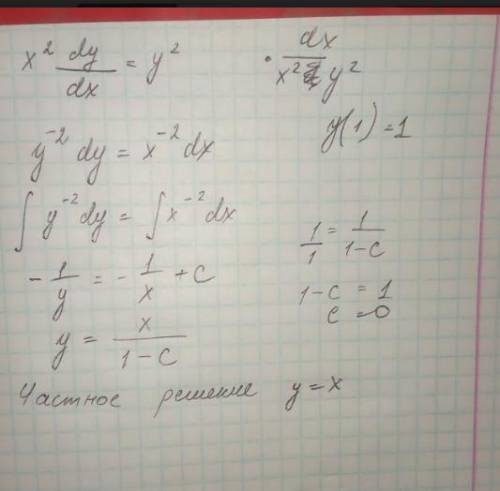 x² dy/dx = y² · dx/(x² y²)
y(1) = 1
y⁻² dy = x⁻² dx
∫ y⁻² dy = ∫ x⁻² dx
- 1/y = - 1/x + C
y = x/(1-C)
1/1 = 1/(1-C)
1-C = 1
C = 0
Частное решение y = x